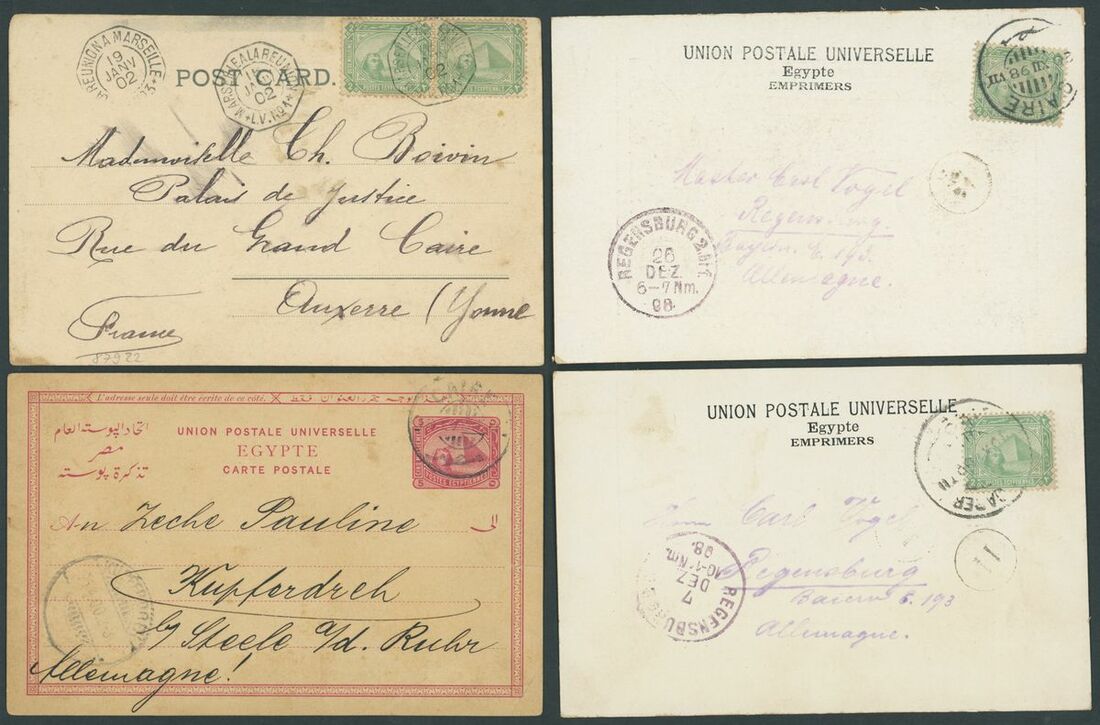 LA REUNION A MARSEILLE
19
JANV
02
MARSEILLE A LA REUNION
JANV
02
L.V. No 4
POST CARD.
02
Mademoiselle Ch. Boivin
Palais de Justice
Rue du Grand Caire
Auxerre (Yonne
France
87922
UNION POSTALE UNIVERSELLE
Egypte
EMPRIMERS
CAIRE
XII 98
Master Carl Vogel
Regensburg.
Bayern E. 193
Allemagne.
REGENSBURG 2. Brf.
26
DEZ.
6-7 Nm.
98.
L'adresse seule doit être écrite de ce côté.
اتحاد البوستة العام
مصر
تذكرة بوستة
UNION POSTALE UNIVERSELLE
EGYPTE
CARTE POSTALE
POSTES EGYPTIENNES
5
An Zeche Pauline
الى
Kupferdreh
b/ Steele a/d. Ruhr
Allemagne!
UNION POSTALE UNIVERSELLE
Egypte
EMPRIMERS
Herrn Carl Vogel
Regensburg
Baiern E. 193
Allemagne.
REGENSBURG
7
DEZ
10-11 Nm.
98.
11